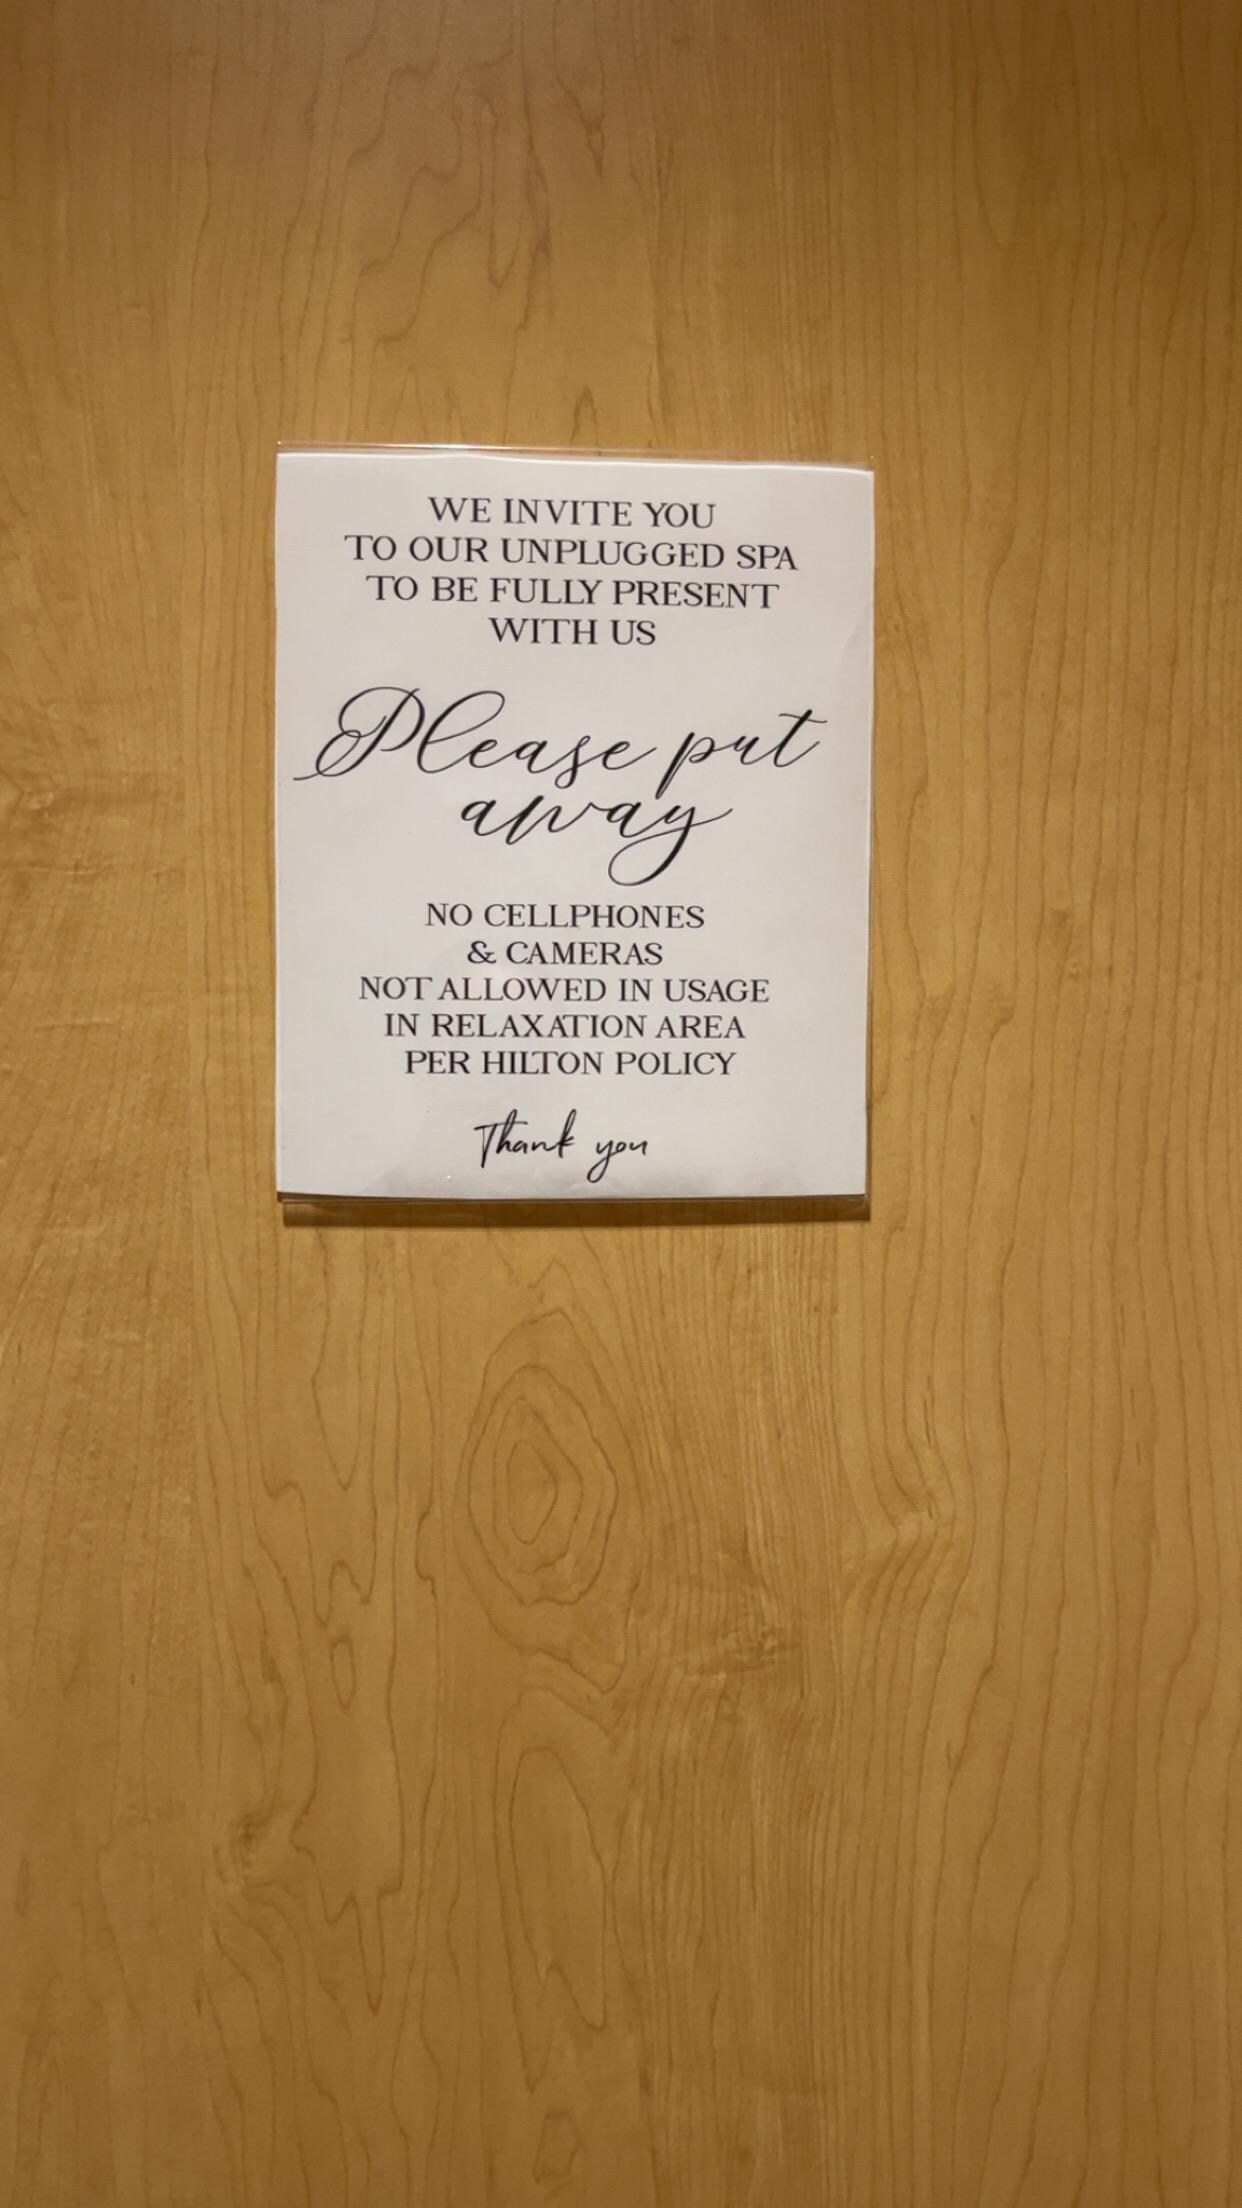 WE INVITE YOU
TO OUR UNPLUGGED SPA
TO BE FULLY PRESENT
WITH US
Please put
away
NO CELLPHONES
& CAMERAS
NOT ALLOWED IN USAGE
IN RELAXATION AREA
PER HILTON POLICY
Thank you